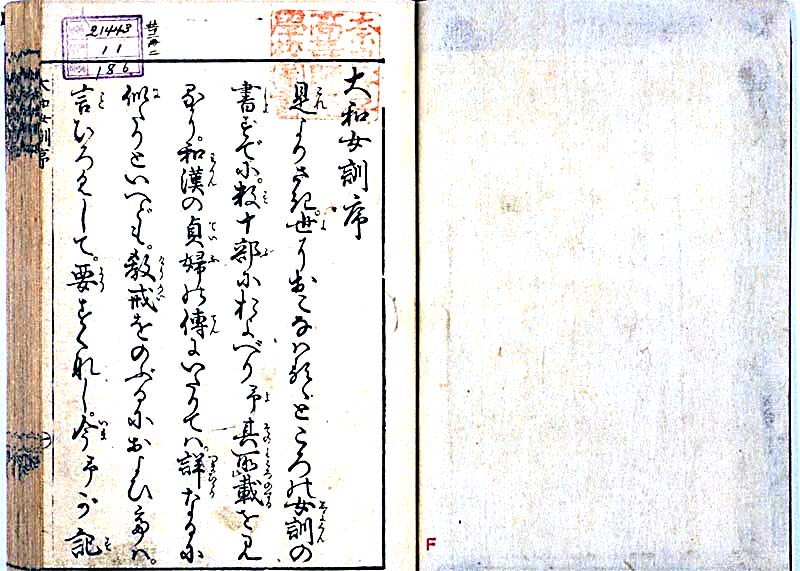 大和女訓序
是よりさき。世におこなはるゝところの女訓の
書すでに。数十部におよべり予其所載を見
るに。和漢の貞婦の傳にいたりては。詳なるに
似たりといへども。教戒をのぶるにおよびては。
言ひろくして。要すくなし。今予が記
大和女訓序
21443
11
186